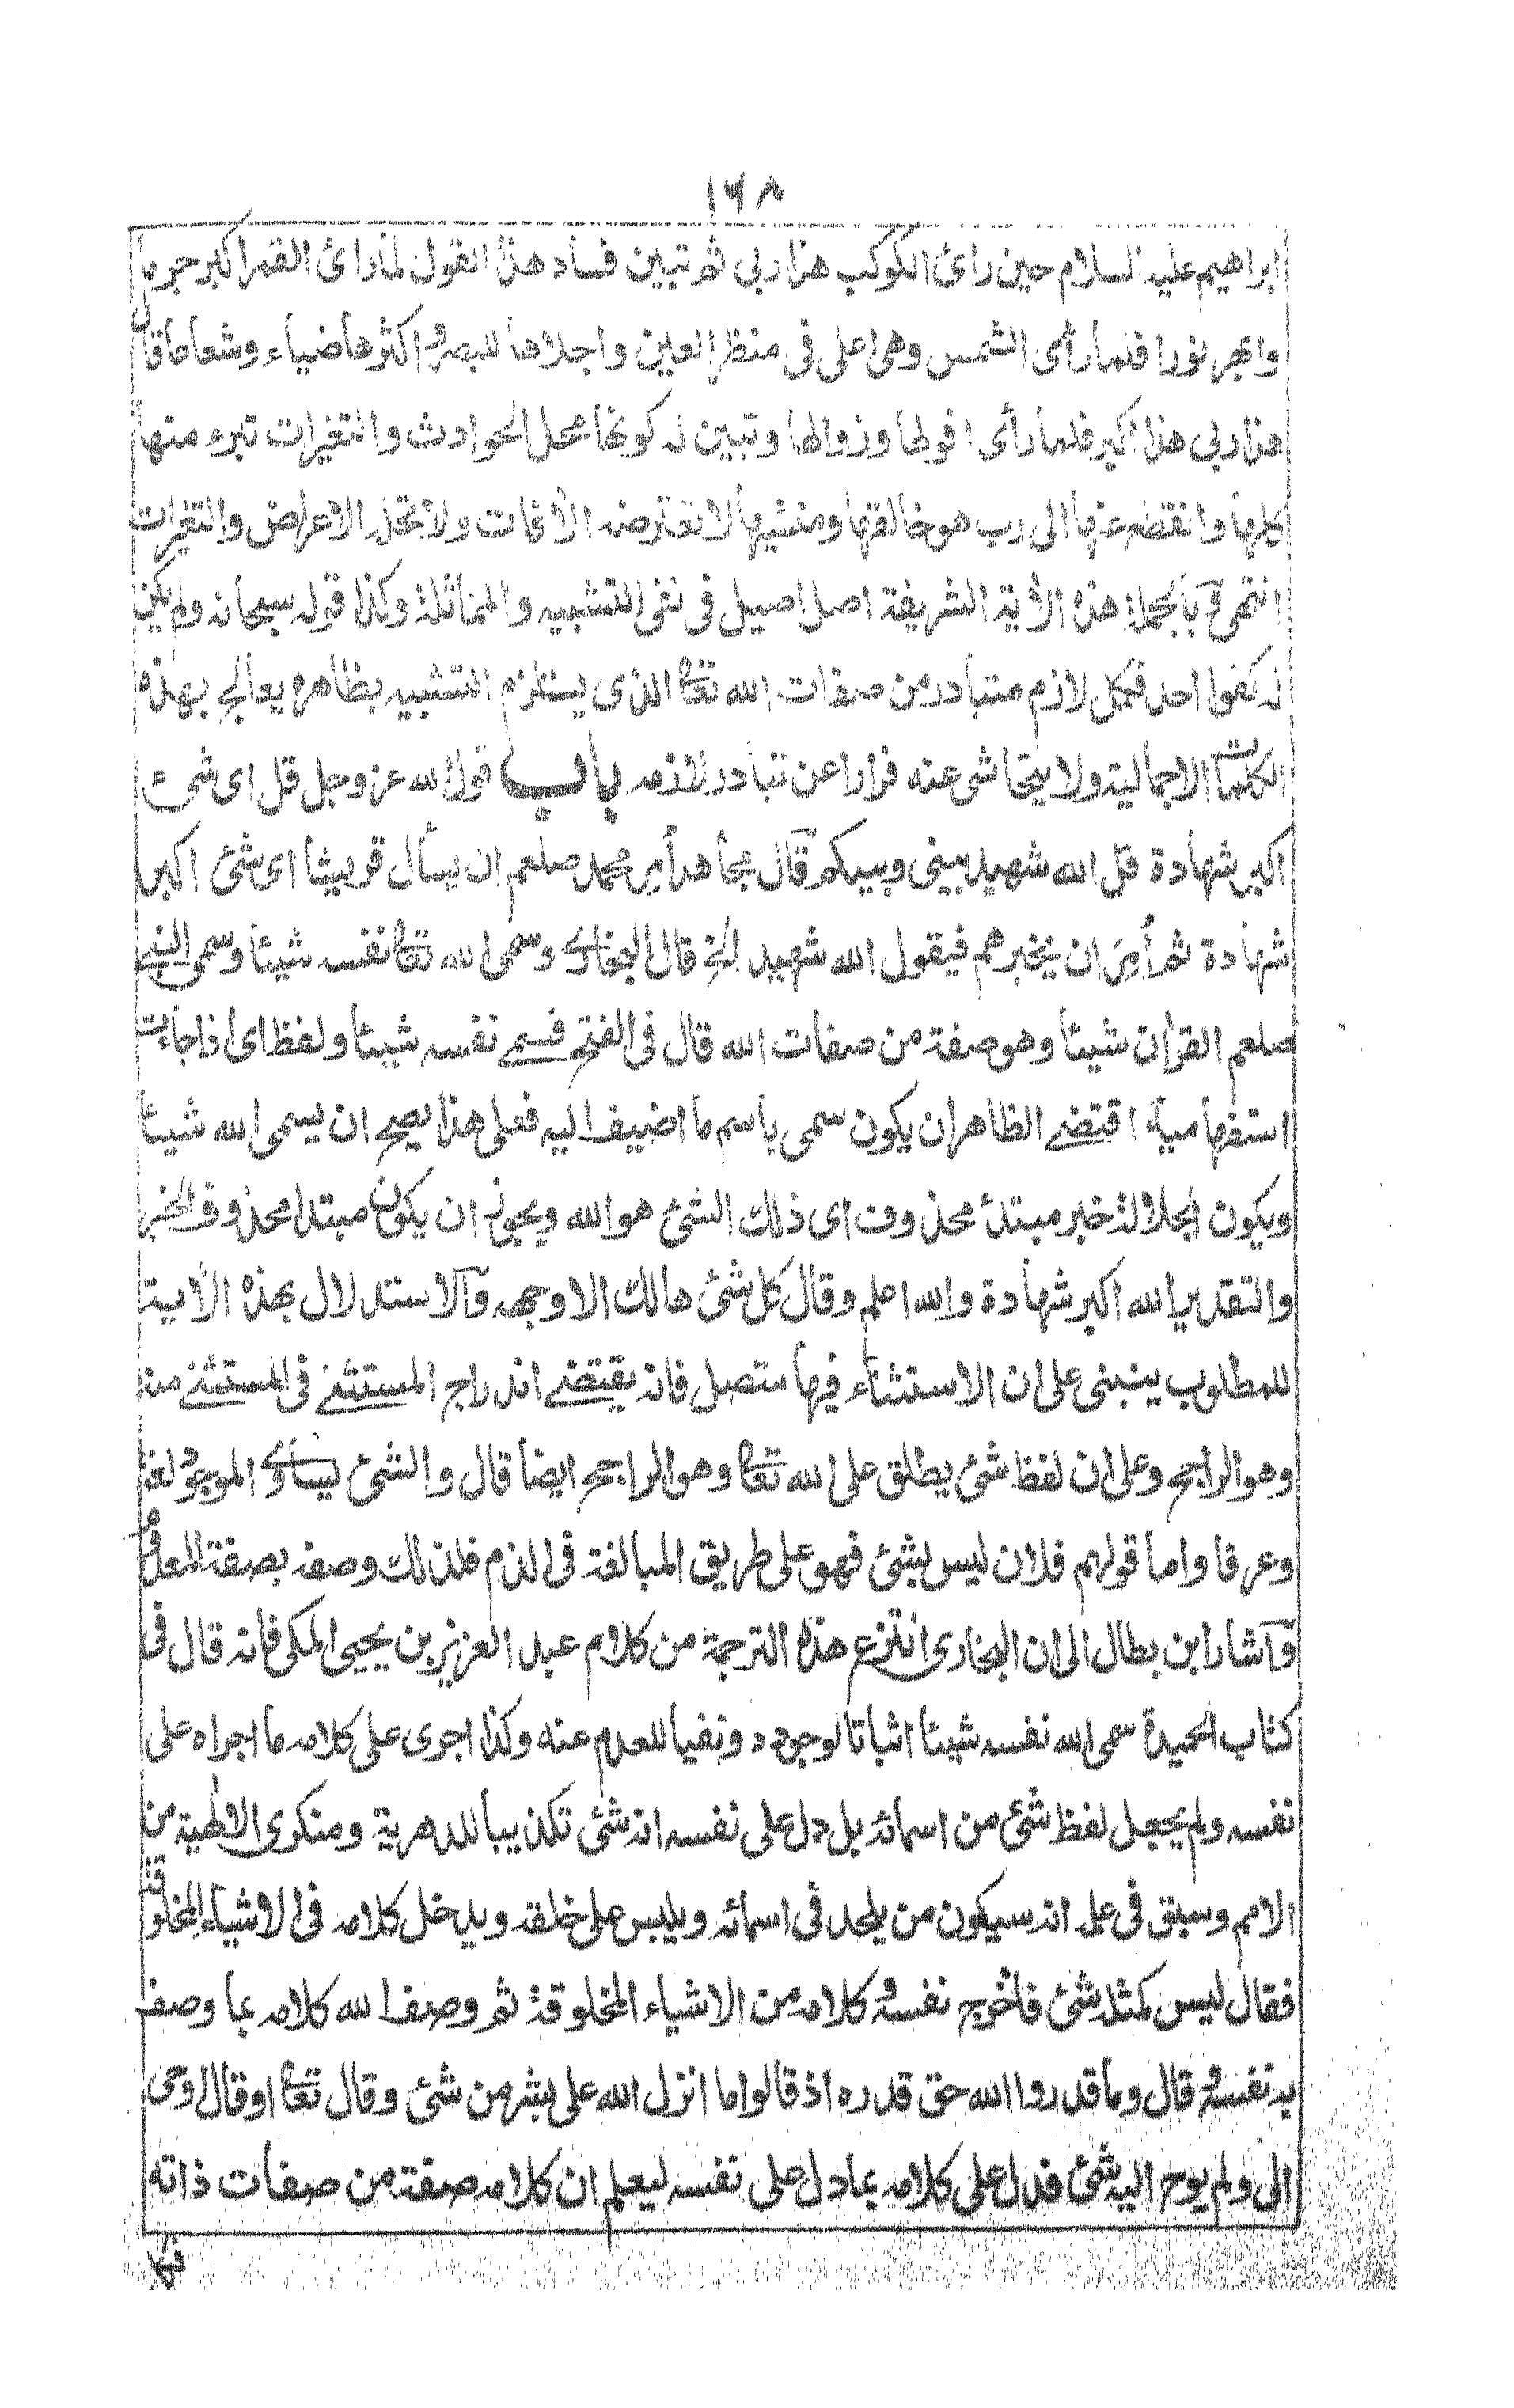 ١٦٨
ابراهيم عليه السلام حين رائ الكوكب هذا ربي ثم تبين فساد هذا القول لما رائ القمر اكبر جرما
وابهر نورا فلما رأى الشمس وهى اعلى فى منظر العين واجلاها للبصر و اكثرها ضياء وشعاعا قال
هذا ربى هذا اكبر فلما رأى افولها وزوالها وتبين له كونها محل الحوادث والتغيرات تبرء منها
كلها وانقطع عنها الى رب هو خالقها ومنشيها لا تعترضه الأفات ولا تحله الاعراض والتغيرات
انتهى وبالجملة هذه الأية الشريفة اصل اصيل فى نفى التشبيه والمماثلة وكذا قوله سبحانه ولم يكن
له كفوا احد فكل لازم متبادر من صفات الله تعا الذى يستلزم التشبيه بظاهره يعالج بهذه
الكلمات الاجمالية ولا يتحاشى عنه فرارا عن تبادر لازمه باب قول الله عز وجل قل اى شىء
اكبر شهادة قل الله شهيد بينى وبينكم قال مجاهد أمر محمد صلعم ان يسأل قريشا اى شئ اكبر
شهادة ثم أمر ان يخبرهم فيقول الله شهيد الخ قال البخارى وسمى الله تعا نفسه شيئا وسمى النبى
صلعم القرأن شيئا وهو صفة من صفات الله قال فى الفتح فسمى نفسه شيئا ولفظ اى اذا جاءت
استفهامية اقتضى الظاهر ان يكون سمى باسم ما اضيف اليه فعلى هذا يصح ان يسمى الله شيئا
ويكون الجلالة خبر مبتدئ محذوف اى ذلك الشئ هو الله ويجوز ان يكون مبتدا محذوف الخبر
والتقدير الله اكبر شهادة والله اعلم وقال كل شئ هالك الا وجهه والاستدلال بهذه الأية
للمطلوب ينبنى على ان الاستثناء فيها متصل فانه يقتضى اندراج المستثنى فى المستثنى منه
وهو الراجح وعلى ان لفظ شئ يطلق على الله تعا وهو الراجح ايضا قال والشئ يساوى الموجود لغة
وعرفا واما قولهم فلان ليس بشئ فهو على طريق المبالغة فى الذم فلذلك وصفه بصفة المعدوم
وأشار ابن بطال الى ان البخارى انتزع هذه الترجمة من كلام عبد العزيز بن يحيى المكى فانه قال فى
كتاب الحيدة سمى الله نفسه شيئا اثباتا لوجوده ونفيا للعدم عنه وكذا اجرى على كلامه ما اجراه على
نفسه ولم يجعل لفظ شئ من اسمائه بل دل على نفسه انه شئ تكذيبا للدهرية ومنكرى الالهية من
الامم وسبق فى علمه انه سيكون من يلحد فى اسمائه ويلبس على خلقه ويدخل كلامه فى الاشياء المخلوقة
فقال ليس كمثله شئ فاخرج نفسه و كلامه من الاشياء المخلوقة ثم وصف الله كلامه بما وصف
به نفسه و قال وما قدروا الله حق قدره اذ قالوا ما انزل الله على بشر من شئ وقال تعا او قال اوحى
الى ولم يوح اليه شئ فدل على كلامه بما دل على نفسه ليعلم ان كلامه صفة من صفات ذاته